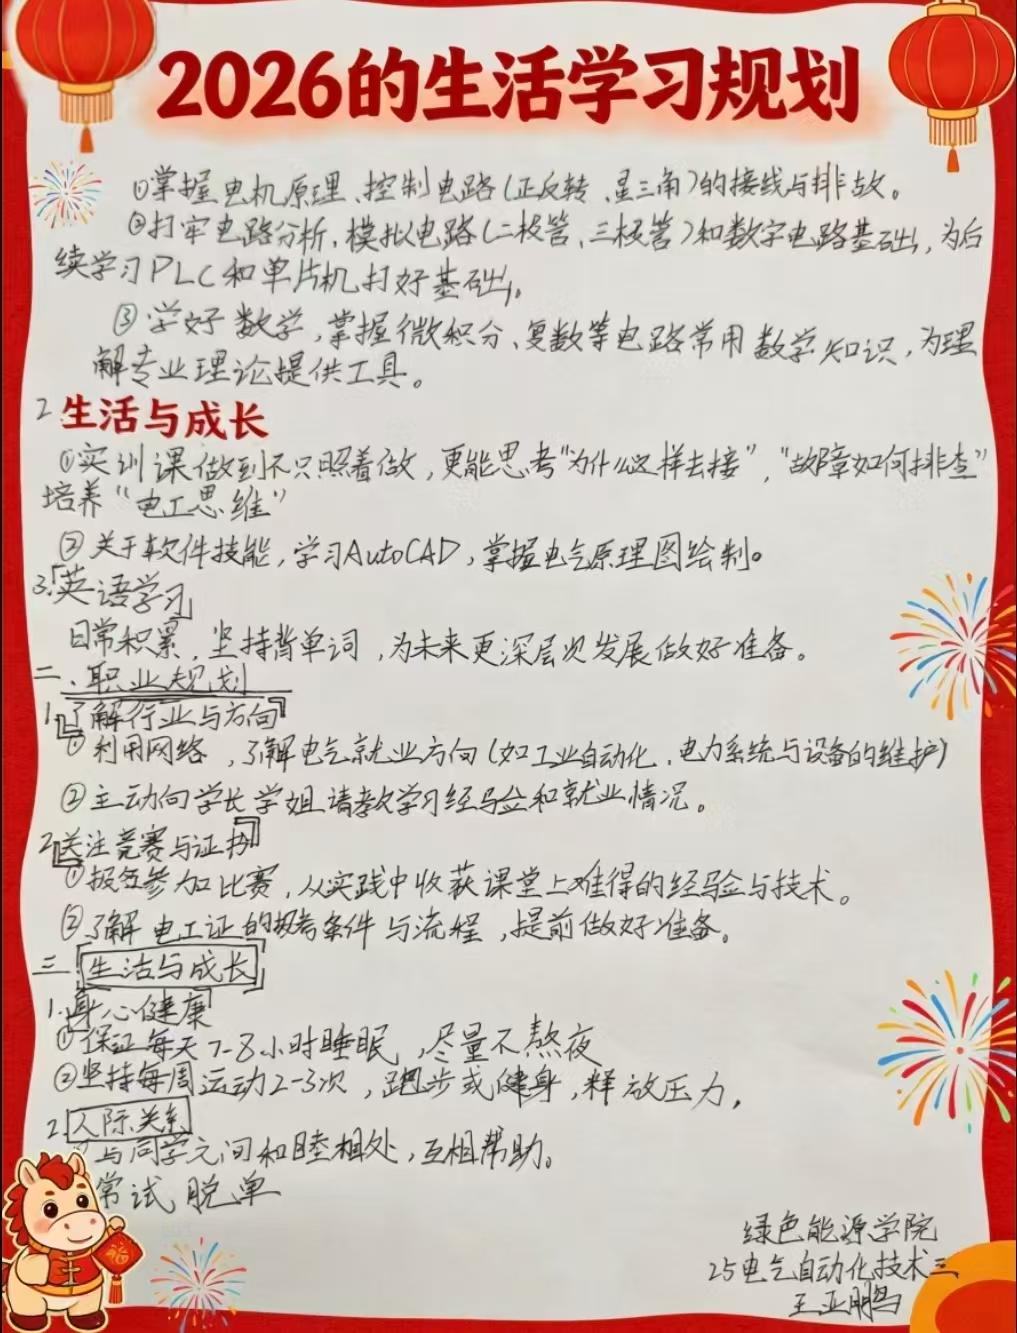 2026的生活学习规划
①掌握电机原理、控制电路(正反转、星三角)的接线与排故。
②打牢电路分析,模拟电路(二极管、三极管)和数字电路基础,为后
续学习PLC和单片机打好基础。
③学好数学,掌握微积分、复数等电路常用数学知识,为理
解专业理论提供工具。
2 生活与成长
①实训课做到不只照着做,更能思考“为什么这样去接”,“故障如何排查”
培养“电工思维”
②关于软件技能,学习AutoCAD,掌握电气原理图绘制。
3.「英语学习」
日常积累,坚持背单词,为未来更深层次发展做好准备。
二、职业规划
1.「了解行业与方向」
①利用网络,了解电气就业方向(如工业自动化,电力系统与设备的维护)
②主动向学长学姐请教学习经验和就业情况。
2「关注竞赛与证书」
①报名参加比赛,从实践中收获课堂上难得的经验与技术。
②了解电工证的报考条件与流程,提前做好准备。
三.生活与成长
1.身心健康
①保证每天7-8小时睡眠,尽量不熬夜
②坚持每周运动2-3次,跑步或健身,释放压力,
2.人际关系
与同学之间和睦相处,互相帮助。
尝试脱单
绿色能源学院
25电气自动化技术三
王亚鹏
福